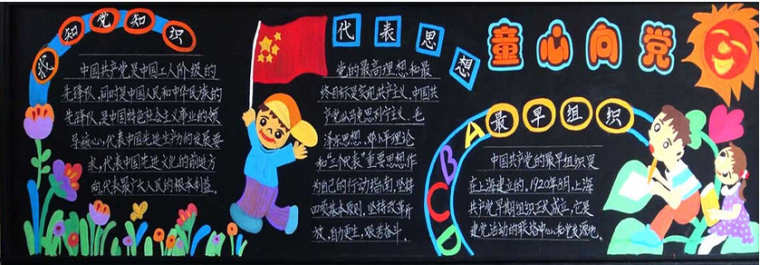 党知识
中国共产党是中国工人阶级的
先锋队,同时是中国人民和中华民族的
先锋队,是中国特色社会主义事业的领
导核心,代表中国先进生产力的发展要
求,代表中国先进文化的前进方
向,代表最广大人民的根本利益。
代表思想
党的最高理想和最
终目标是实现共产主义。中国共
产党以马克思列宁主义、毛
泽东思想、邓小平理论
和“三个代表”重要思想作
为自己的行动指南,坚持
四项基本原则,坚持改革开
放,自力更生,艰苦奋斗。
童心向党
ABCD
最早组织
中国共产党的最早组织是
在上海建立的,1920年8月,上海
共产党早期组织正式成立,它是
建党活动的联络中心